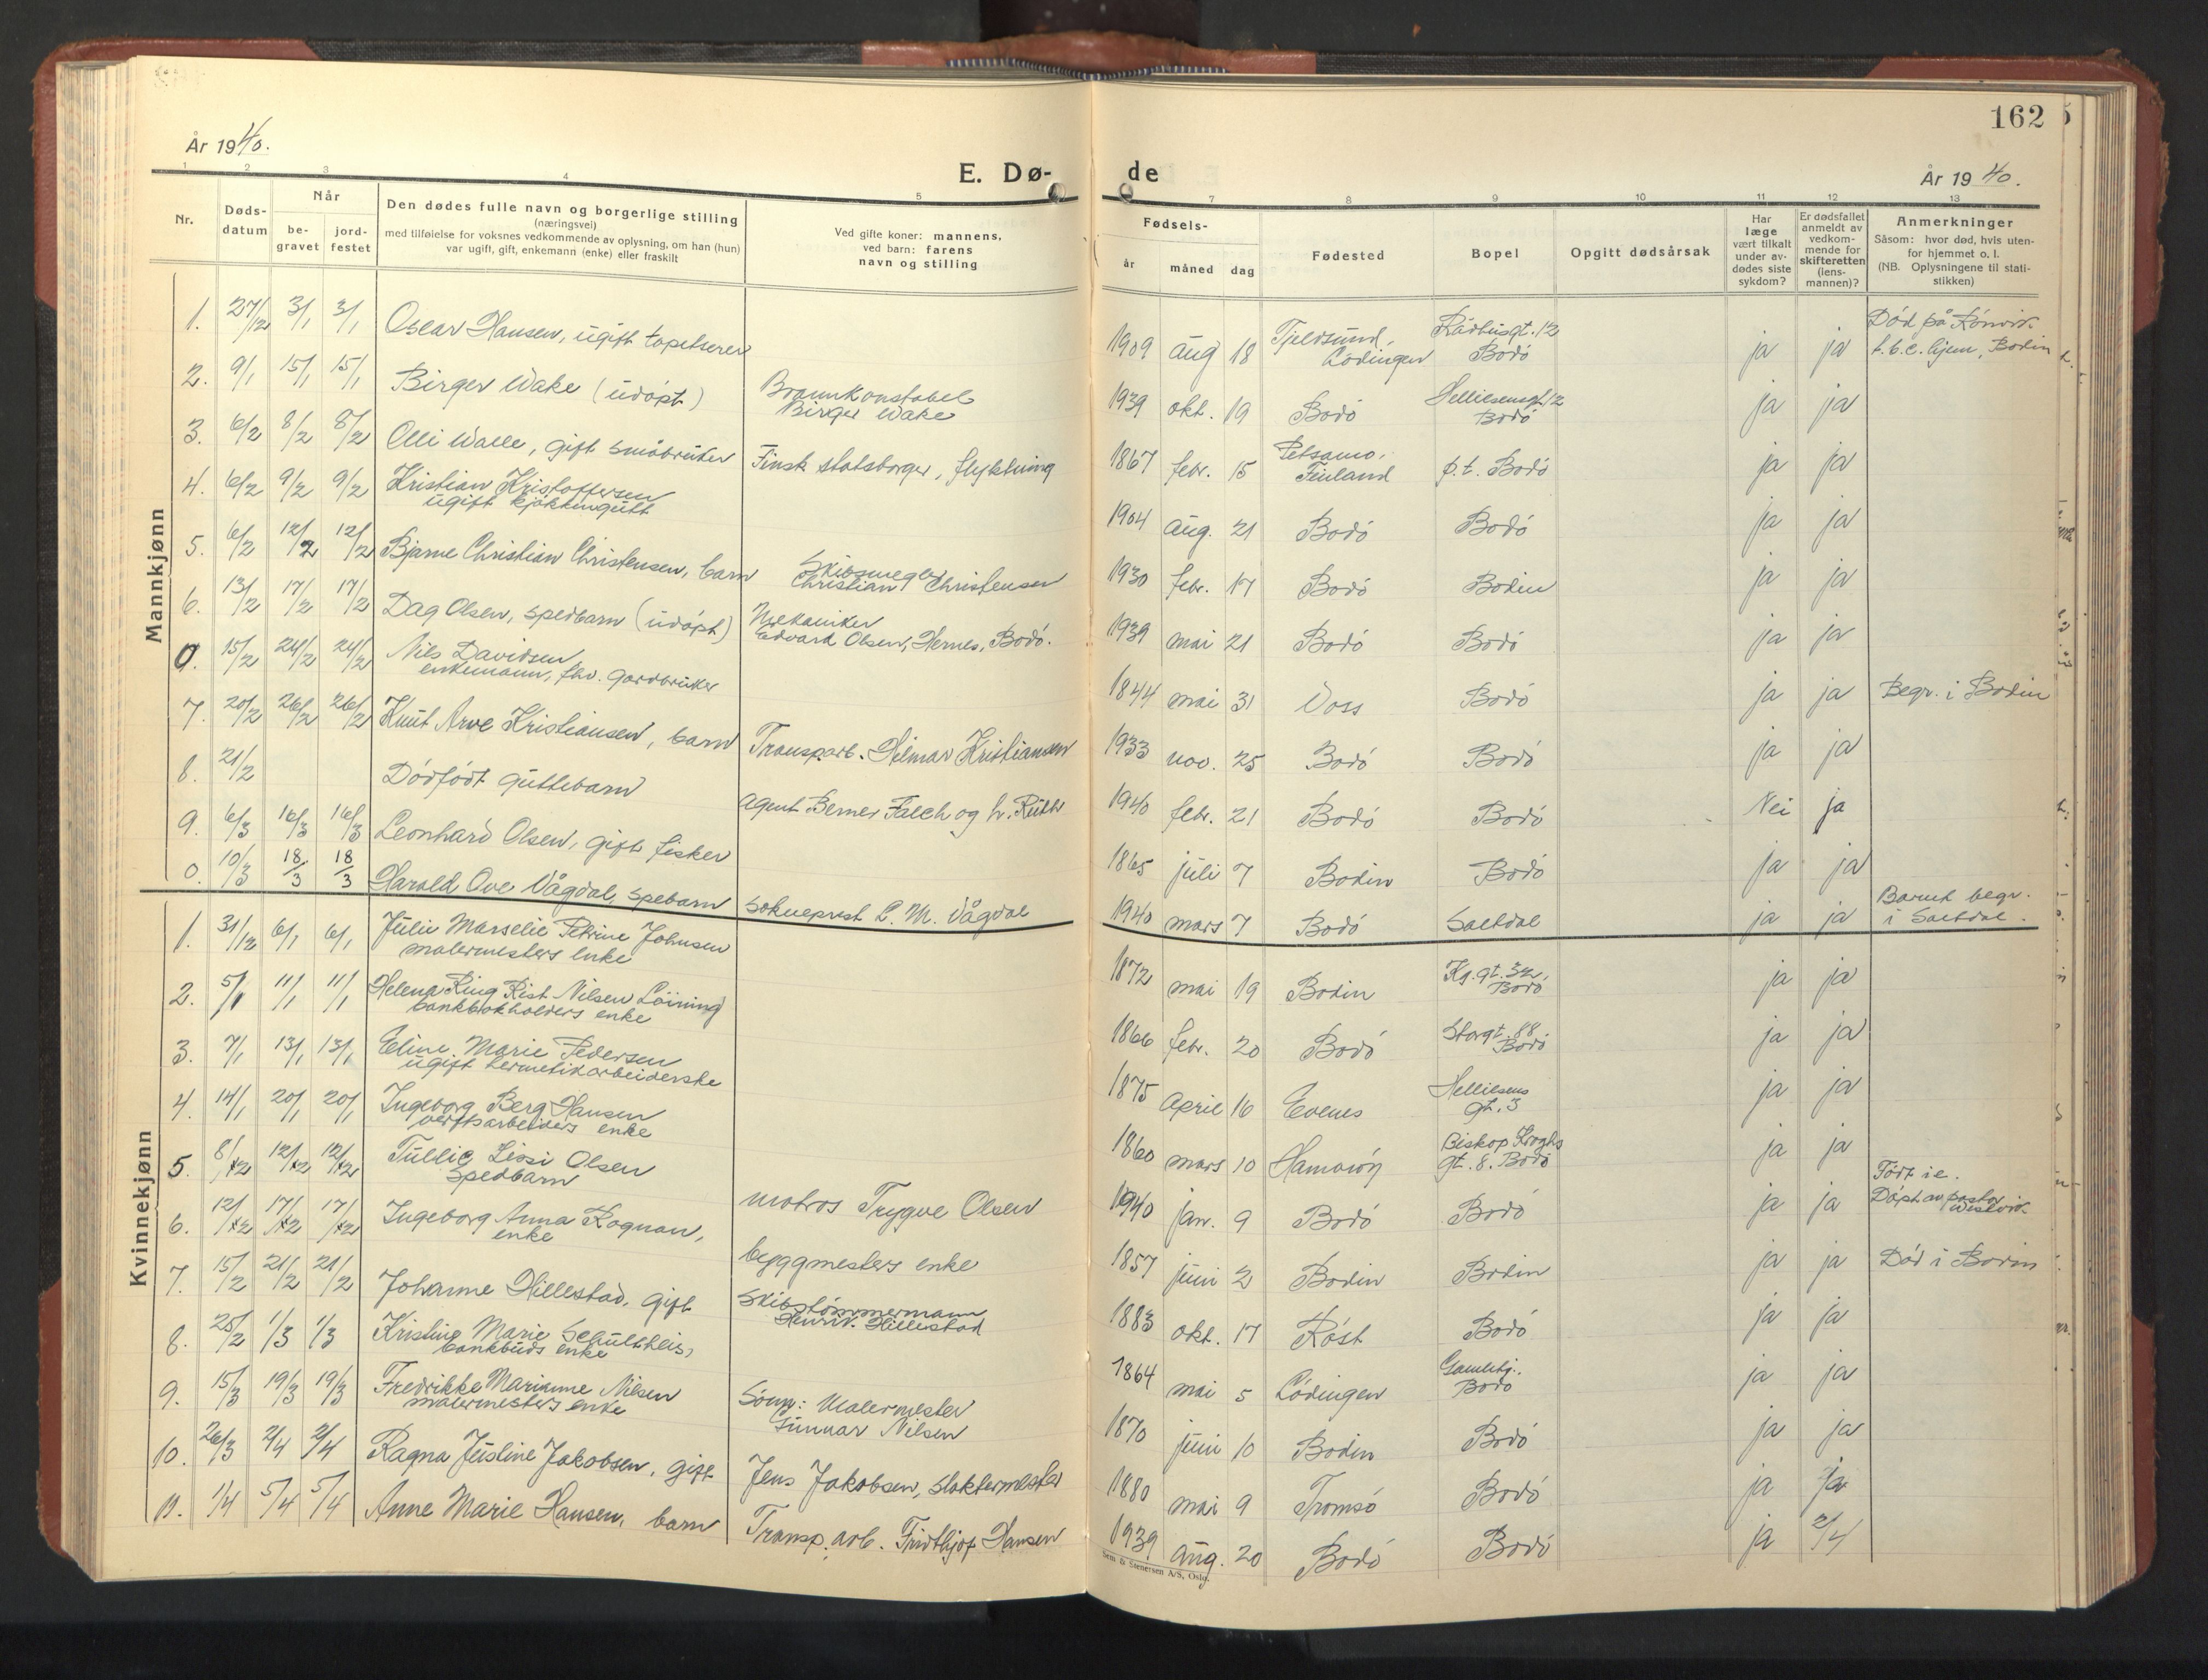 162
År 1940.
E. Dø-
de
År 1940.
1 2 3 4 5
7 8 9 10 11 12 13
Nr.
Døds-
datum
Når
be-
gravet
jord-
festet
Den dødes fulle navn og borgerlige stilling
(næringsvei)
med tilføielse for voksnes vedkommende av oplysning, om han (hun)
var ugift, gift, enkemann (enke) eller fraskilt
Ved gifte koner: mannens,
ved barn: farens
navn og stilling
Fødsels-
år måned dag
Fødested
Bopel
Opgitt dødsårsak
Har
læge
vært tilkalt
under av-
dødes siste
sykdom?
Er dødsfallet
anmeldt av
vedkom-
mende for
skifteretten
(lens-
mannen)?
Anmerkninger
Såsom: hvor død, hvis uten-
for hjemmet o. l.
(NB. Oplysningene til stati-
stikken)
Mannkjønn
1. 27/12 3/1 3/1 Oscar Hansen, ugift tapetserer
1909 aug 18 Tjeldsund, Lödingen Rådhusgt. 12 Bodö ja ja Död på Rönvik t.b.c. hjem, Bodin
2. 9/1 15/1 15/1 Birger Wake (udöpt) Brannkonstabel Birger Wake
1939 okt. 19 Bodö Hellilsensgt 12 Bodö ja ja
3. 6/2 8/2 8/2 Olli Walle, gift småbruker Finsk statsborger, flyktning
1867 febr. 15 Petsamo, Finland p.t. Bodö ja ja
4. 6/2 9/2 9/2 Kristian Kristoffersen ugift kjökkengutt
1904 aug. 21 Bodö Bodö ja ja
5. 6/2 12/2 12/2 Bjarne Christian Christensen, barn Skibsmegler Christian Christensen
1930 febr. 17 Bodö Bodin ja ja
6. 13/2 17/2 17/2 Dag Olsen, spedbarn (udöpt) Mekaniker Edvard Olsen, Hernes, Bodö.
1939 mai 21 Bodö Bodö ja ja
0. 15/2 24/2 24/2 Nils Davidsen enkemann, fhv. gardbruker
1844 mai 31 Voss Bodö ja ja Begr. i Bodin
7. 20/2 26/2 26/2 Knut Arve Kristiansen, barn Transp.arb. Hilmar Kristiansen
1933 nov. 25 Bodö Bodö ja ja
8. 21/2 Dödfödt guttebarn Agent Berner Falch og h. Ruth
1940 febr. 21 Bodö Bodö Nei ja
9. 6/3 16/3 16/3 Leonhard Olsen, gift fisker
1865 juli 7 Bodin Bodö ja ja
0. 10/3 18/3 18/3 Harald Ove Vågdal, spebarn Sokneprest L. M. Vågdal
1940 mars 7 Bodö Saltdal ja ja Barnet begr. i Saltdal.
Kvinnekjønn
1. 31/12 6/1 6/1 Julie Marselie Petrine Johnsen malermesters enke
1872 mai 19 Bodin Kg. gt. 32, Bodö ja ja
2. 5/1 11/1 11/1 Helena Ring Rist Nilsen Löining bankbokholders enke
1866 febr. 20 Bodö Storgt. 88 Bodö ja ja
3. 7/1 13/1 13/1 Eline Marie Pedersen ugift hermetikarbeiderske
1875 April 16 Evenes Hellilsens gt. 3 ja ja
4. 14/1 20/1 20/1 Ingeborg Berg Hansen verftsarbeiders enke
1860 mars 10 Hamaröy Biskop Kroghs gt. 8. Bodö ja ja
5. 8/2 12/2 12/2 Tullie Lissi Olsen Spedbarn matros Trygve Olsen
1940 jan. 9 Bodö Bodö ja ja Födt i e. Döpt av pastor
6. 12/2 17/2 17/2 Ingeborg Anna Rognan, enke byggmesters enke
1857 juni 2 Bodin Bodin ja ja Död i Bodin
7. 15/2 21/2 21/2 Johanne Hillestad, gift Skibstömmermann Henrik Hillestad
1883 okt. 17 Röst Bodö ja ja
8. 25/2 1/3 1/3 Kristine Marie Schultheis, bankbuds enke
1864 mai 5 Lödingen Gamlehj. Bodö ja ja
9. 15/3 19/3 19/3 Fredrikke Marianne Nilsen malermesters enke Sönn: Malermester Gunnar Nilsen
1870 juni 10 Bodin Bodö ja ja
10. 26/3 2/4 2/4 Ragna Justine Jakobsen, gift Jens Jakobsen, slaktermester
1880 mai 9 Tromsö Bodö ja ja
11. 1/4 5/4 5/4 Anne Marie Hansen, barn Transp. arb. Fridthjof Hansen
1939 aug. 20 Bodö Bodö ja 2/4
Sem & Stenersen A/S, Oslo.